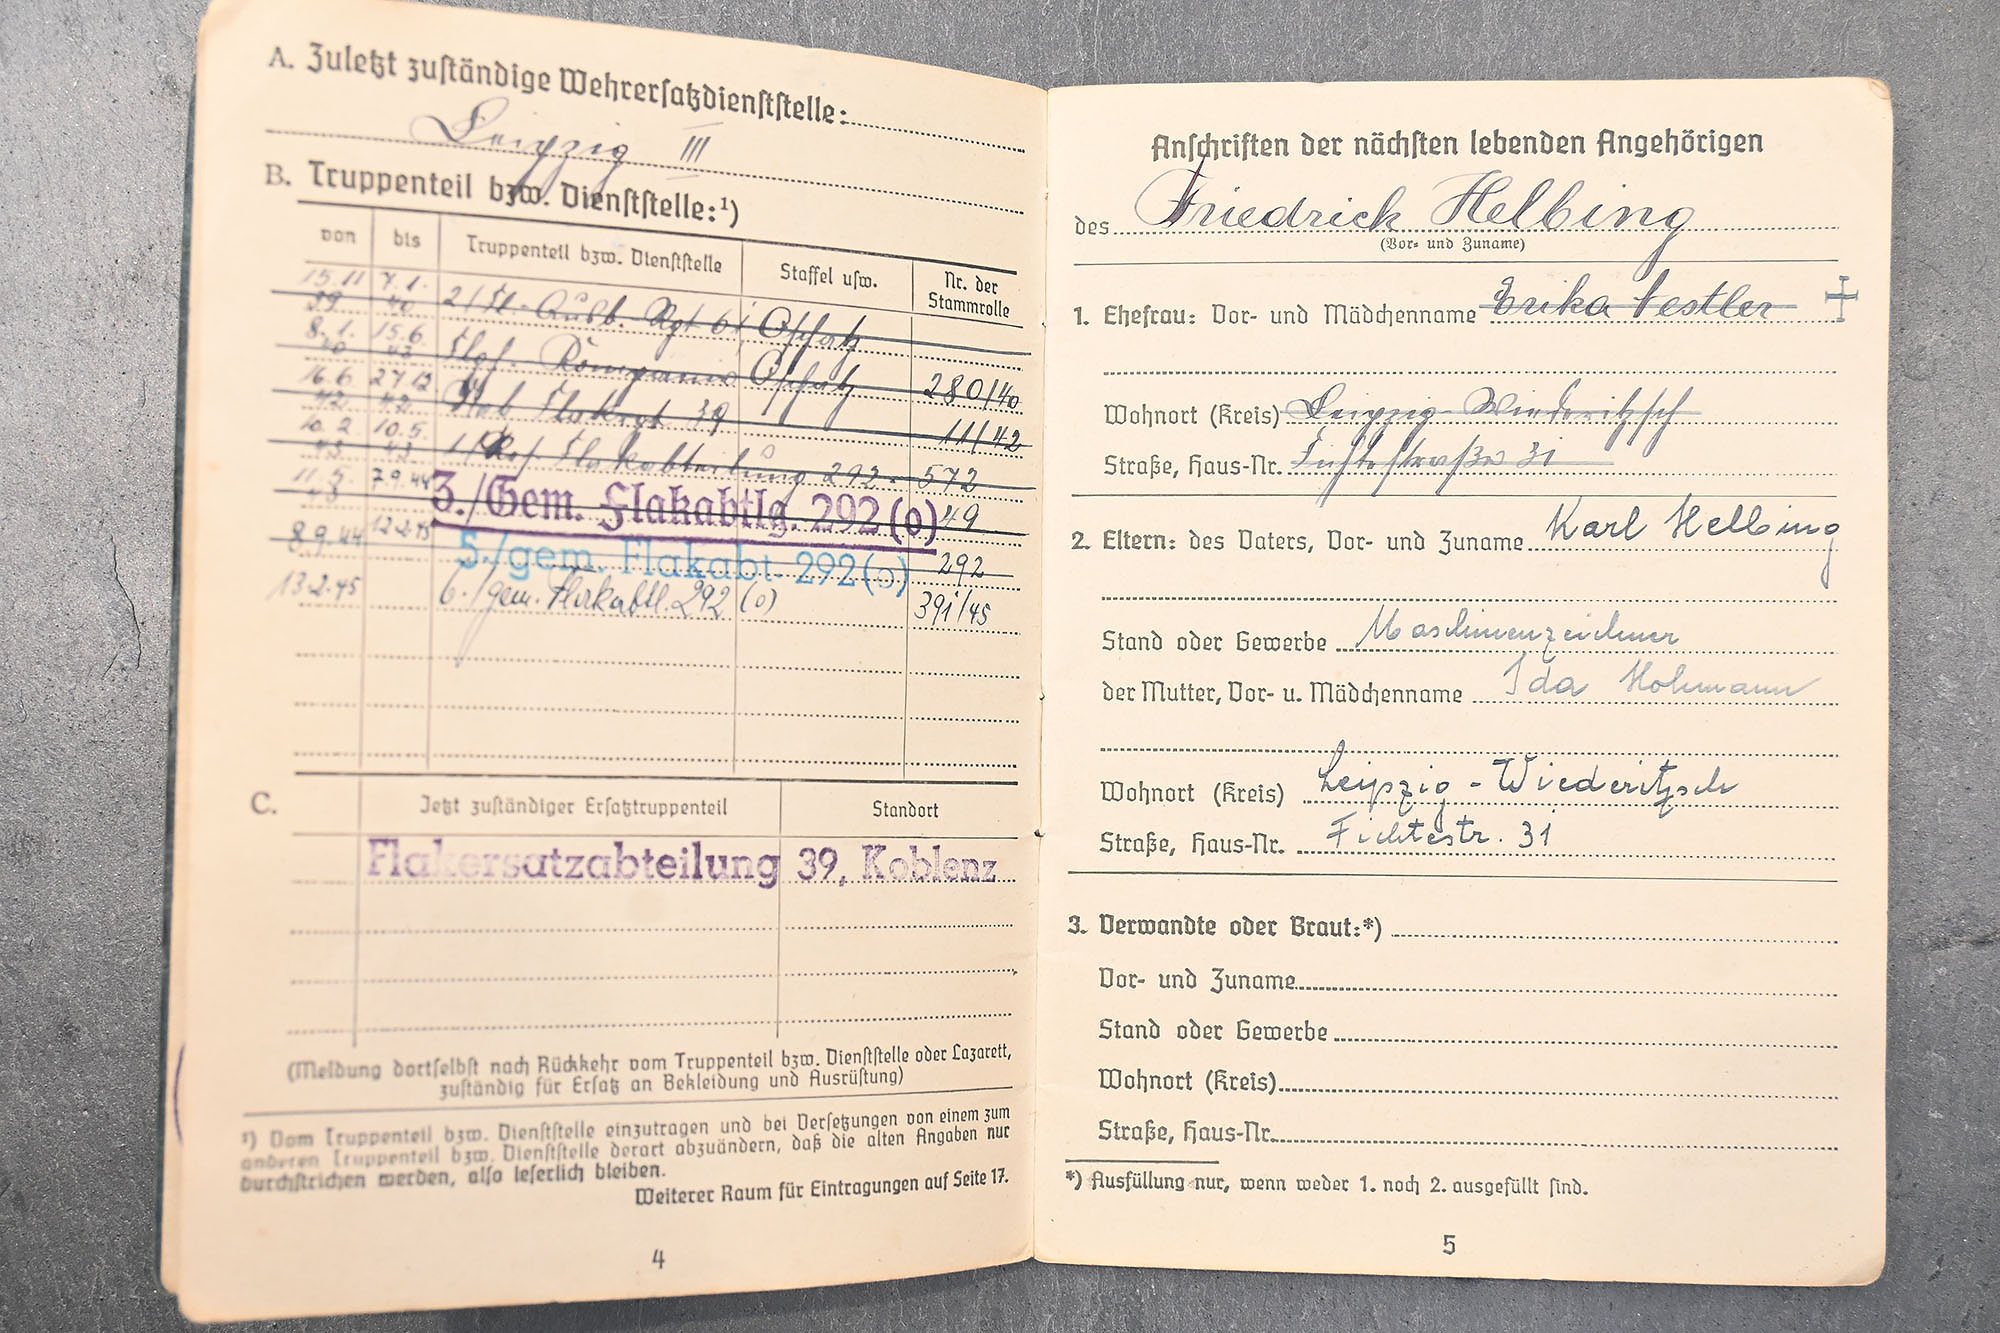 A. Zuletzt zuständige Wehrersatzdienststelle:
Leipzig III
B. Truppenteil bzw. Dienststelle:¹)
von bis Truppenteil bzw. Dienststelle Staffel usw. Nr. der Stammrolle
15.11 39 7.1. 40 2/Fl. Ausb. Rgt 61 Oschatz
8.1. 40 15.6. Kompanie Oschatz 280/40
16.6 42 27.12. 42 Stab Flakrgt 39 11/42
10.2. 43 10.5. 43 Flakabteilung 292 572
11.5. 43 7.9.44 3./Gem. Flakabtlg. 292 (o) 49
8.9.44 12.2.45 5./gem. Flakabt. 292(o) 292
13.2.45 6./gem. Flakabtl. 292 (o) 391/45
C. Jetzt zuständiger Ersatztruppenteil Standort
Flakersatzabteilung 39, Koblenz
(Meldung dortselbst nach Rückkehr vom Truppenteil bzw. Dienststelle oder Lazarett,
zuständig für Ersatz an Bekleidung und Ausrüstung)
¹) Vom Truppenteil bzw. Dienststelle einzutragen und bei Versetzungen von einem zum
anderen Truppenteil bzw. Dienststelle derart abzuändern, daß die alten Angaben nur
durchstrichen werden, also leserlich bleiben.
Weiterer Raum für Eintragungen auf Seite 17.
4
Anschriften der nächsten lebenden Angehörigen
des Friedrich Helbing
(Vor- und Zuname)
1. Ehefrau: Vor- und Mädchenname Erika Nestler
Wohnort (Kreis) Leipzig-Wiederitzsch
Straße, Haus-Nr. Fichtestraße 31
2. Eltern: des Vaters, Vor- und Zuname Karl Helbing
Stand oder Gewerbe Maschinenzeichner
der Mutter, Vor- u. Mädchenname Ida Hohmann
Wohnort (Kreis) Leipzig-Wiederitzsch
Straße, Haus-Nr. Fichtestr. 31
3. Verwandte oder Braut:*)
Vor- und Zuname
Stand oder Gewerbe
Wohnort (Kreis)
Straße, Haus-Nr.
*) Ausfüllung nur, wenn weder 1. noch 2. ausgefüllt sind.
5